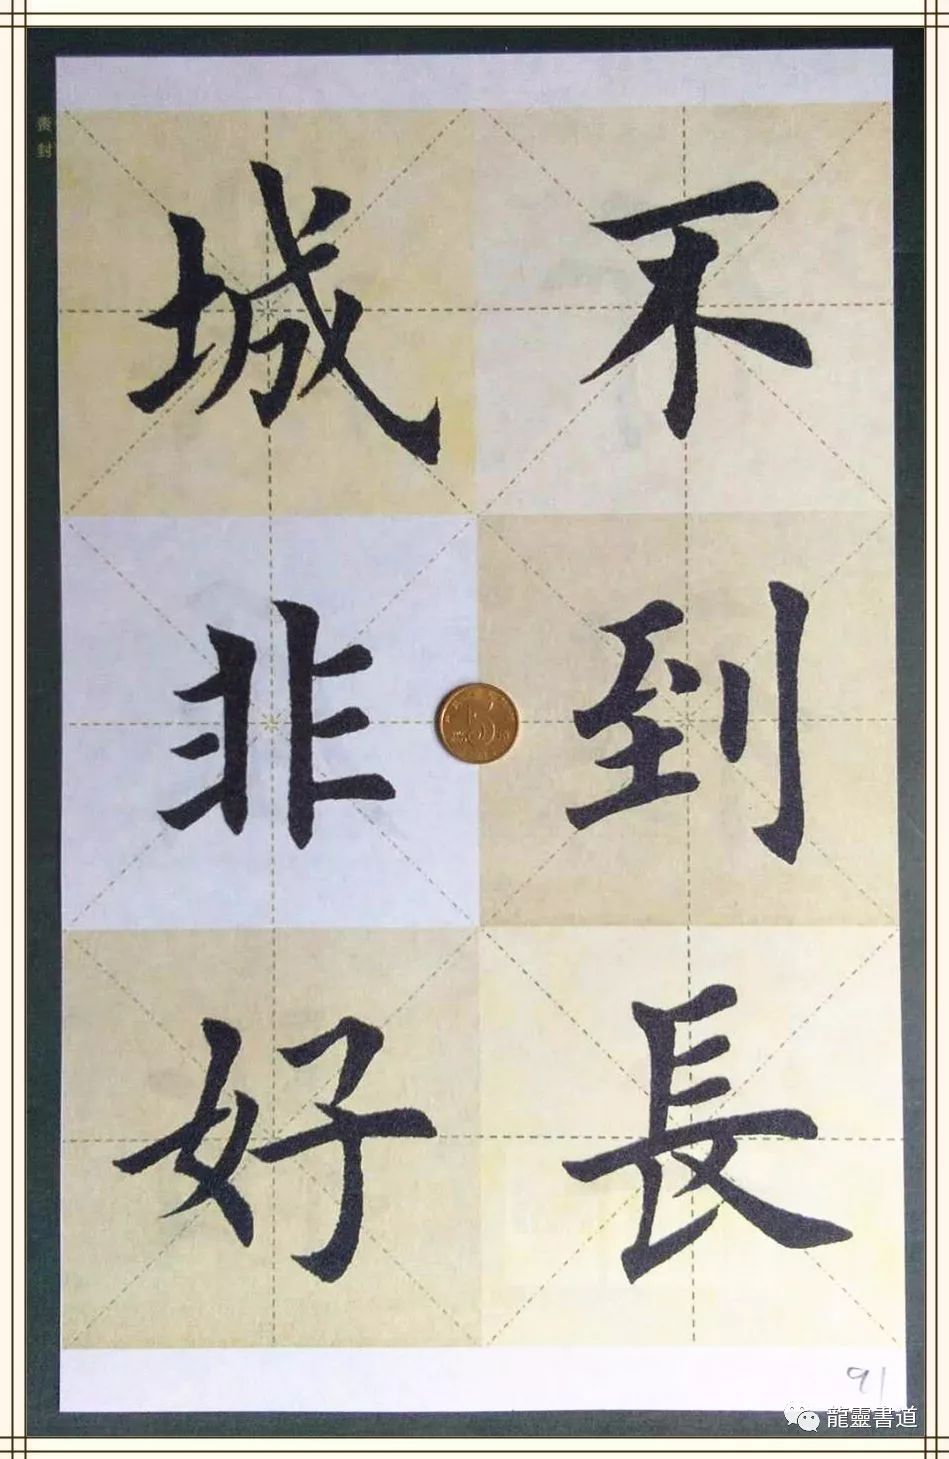 不到長
城非好
91
龍靈書道